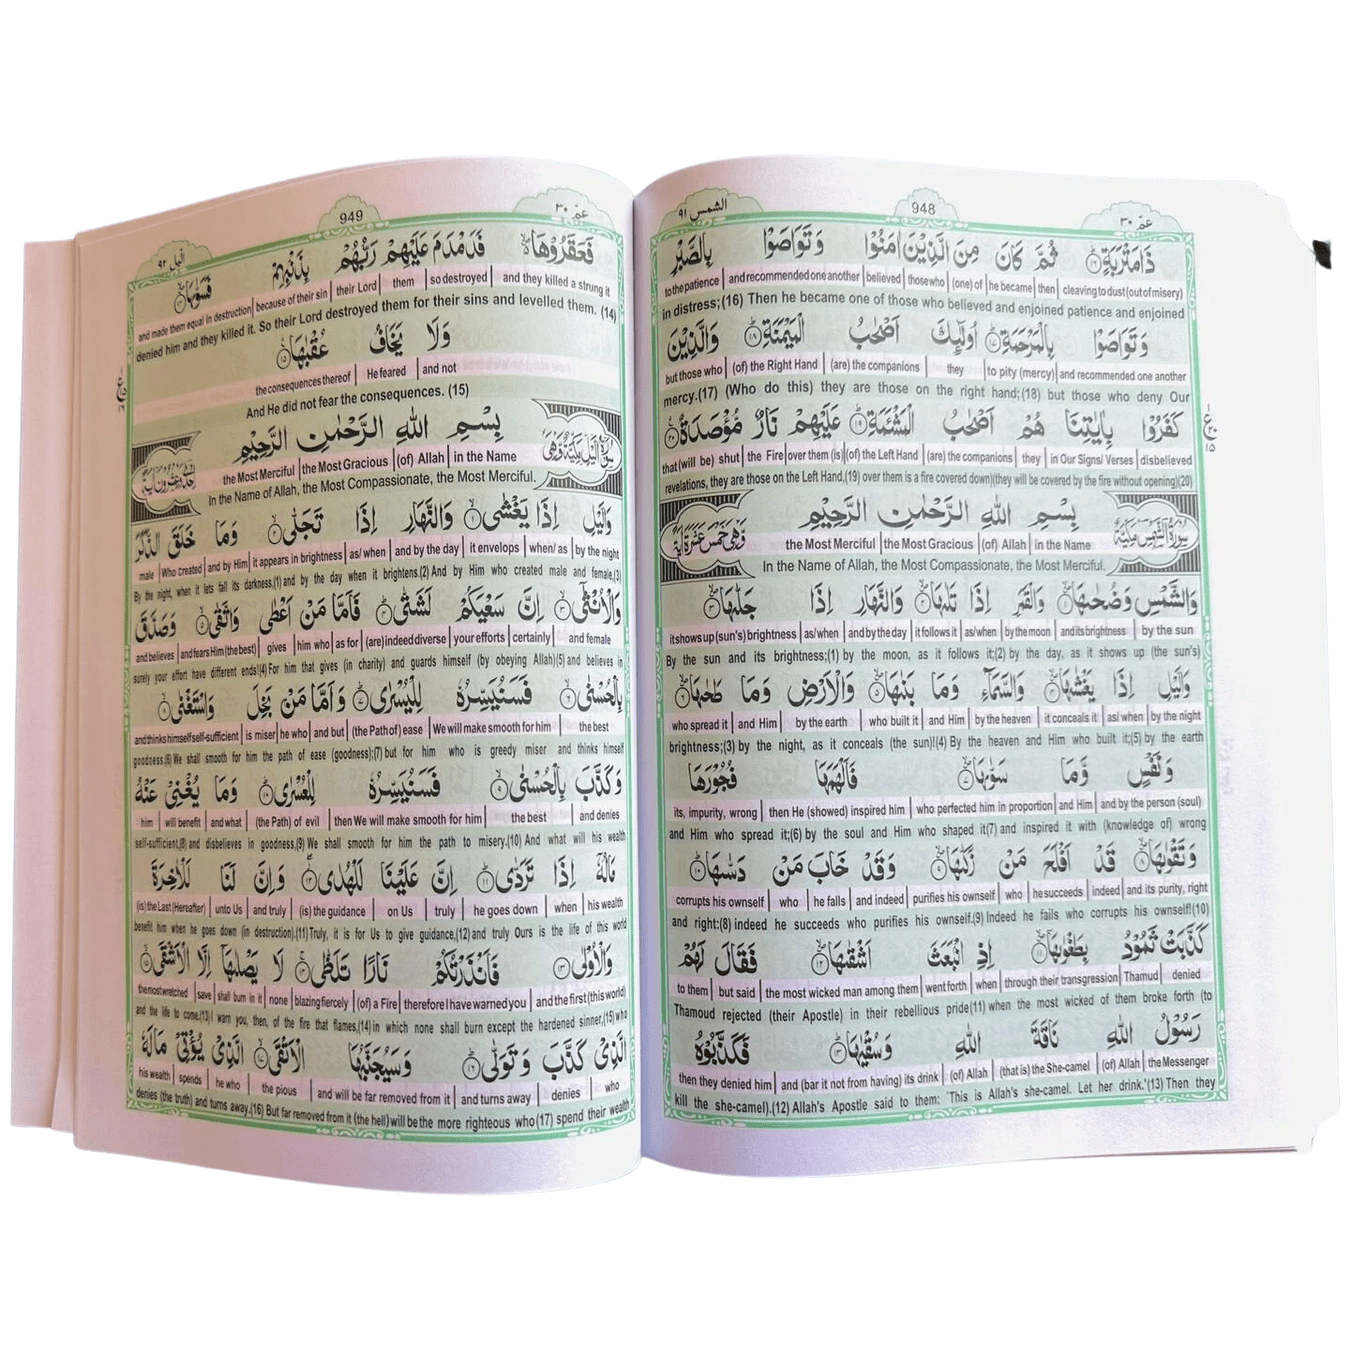 الشمس ٩١
948
عمّ ٣٠
ذَا مَتْرَبَةٍ ١٦ ثُمَّ كَانَ مِنَ الَّذِيْنَ اٰمَنُوْا وَتَوَاصَوْا بِالصَّبْرِ
to the patience | and recommended one another | believed | those who | (one) of | he became | then | cleaving to dust (out of misery)
in distress;(16) Then he became one of those who believed and enjoined patience and enjoined
وَتَوَاصَوْا بِالْمَرْحَمَةِ ١٧ اُولٰٓئِكَ اَصْحٰبُ الْمَيْمَنَةِ ١٨ وَالَّذِيْنَ
but those who | (of) the Right Hand | (are) the companions | they | to pity (mercy) | and recommended one another
mercy.(17) (Who do this) they are those on the right hand;(18) but those who deny Our
كَفَرُوْا بِاٰيٰتِنَا هُمْ اَصْحٰبُ الْمَشْـَٔمَةِ ١٩ عَلَيْهِمْ نَارٌ مُّؤْصَدَةٌ ٢٠
that (will be) shut | the Fire | over them (is) | (of) the Left Hand | (are) the companions | they | in Our Signs/ Verses | disbelieved
revelations, they are those on the Left Hand,(19) over them is a fire covered down)(they will be covered by the fire without opening)(20)
سُوْرَةُ الشَّمْسِ مَكِّيَّةٌ
بِسْمِ اللّٰهِ الرَّحْمٰنِ الرَّحِيْمِ
وَّهِيَ خَمْسَ عَشْرَةَ اٰيَةً
the Most Merciful | the Most Gracious | (of) Allah | in the Name
In the Name of Allah, the Most Compassionate, the Most Merciful.
وَالشَّمْسِ وَضُحٰىهَا ١ وَالْقَمَرِ اِذَا تَلٰىهَا ٢ وَالنَّهَارِ اِذَا جَلّٰىهَا ٣
it shows up (sun's) brightness | as/when | and by the day | it follows it | as/when | by the moon | and its brightness | by the sun
By the sun and its brightness;(1) by the moon, as it follows it;(2) by the day, as it shows up (the sun's)
وَالَّيْلِ اِذَا يَغْشٰىهَا ٤ وَالسَّمَآءِ وَمَا بَنٰىهَا ٥ وَالْاَرْضِ وَمَا طَحٰىهَا ٦
who spread it | and Him | by the earth | who built it | and Him | by the heaven | it conceals it | as/ when | by the night
brightness;(3) by the night, as it conceals (the sun)!(4) By the heaven and Him who built it;(5) by the earth
وَنَفْسٍ وَّمَا سَوّٰىهَا ٧ فَاَلْهَمَهَا فُجُوْرَهَا
its, impurity, wrong | then He (showed) inspired him | who perfected him in proportion | and Him | and by the person (soul)
and Him who spread it;(6) by the soul and Him who shaped it(7) and inspired it with (knowledge of) wrong
وَتَقْوٰىهَا ٨ قَدْ اَفْلَحَ مَنْ زَكّٰىهَا ٩ وَقَدْ خَابَ مَنْ دَسّٰىهَا ١٠
corrupts his ownself | who | he falls | and indeed | purifies his ownself | who | he succeeds | indeed | and its purity, right
and right:(8) indeed he succeeds who purifies his ownself.(9) Indeed he fails who corrupts his ownself!(10)
كَذَّبَتْ ثَمُوْدُ بِطَغْوٰىهَا ١١ اِذِ انْۢبَعَثَ اَشْقٰىهَا ١٢ فَقَالَ لَهُمْ
to them | but said | the most wicked man among them | went forth | when | through their transgression | Thamud | denied
Thamoud rejected (their Apostle) in their rebellious pride(11) when the most wicked of them broke forth (to
رَسُوْلُ اللّٰهِ نَاقَةَ اللّٰهِ وَسُقْيٰهَا ١٣ فَكَذَّبُوْهُ
then they denied him | and (bar it not from having) its drink | (of) Allah | (that is) the She-camel | (of) Allah | the Messenger
kill the she-camel).(12) Allah's Apostle said to them: 'This is Allah's she-camel. Let her drink.'(13) Then they
اليل ٩٢
949
عمّ ٣٠
فَعَقَرُوْهَا فَدَمْدَمَ عَلَيْهِمْ رَبُّهُمْ بِذَنْۢبِهِمْ فَسَوّٰىهَا ١٤
and made them equal in destruction | because of their sin | their Lord | them | so destroyed | and they killed a strung it
denied him and they killed it. So their Lord destroyed them for their sins and levelled them. (14)
وَلَا يَخَافُ عُقْبٰهَا ١٥
the consequences thereof | He feared | and not
And He did not fear the consequences. (15)
سُوْرَةُ الَّيْلِ مَكِّيَّةٌ وَّهِيَ
بِسْمِ اللّٰهِ الرَّحْمٰنِ الرَّحِيْمِ
اِحْدٰى وَعِشْرُوْنَ اٰيَةً
the Most Merciful | the Most Gracious | (of) Allah | in the Name
In the Name of Allah, the Most Compassionate, the Most Merciful.
وَالَّيْلِ اِذَا يَغْشٰى ١ وَالنَّهَارِ اِذَا تَجَلّٰى ٢ وَمَا خَلَقَ الذَّكَرَ
male | Who created | and by Him | it appears in brightness | as/ when | and by the day | it envelops | when/ as | by the night
By the night, when it lets fall its darkness,(1) and by the day when it brightens.(2) And by Him who created male and female,(3)
وَالْاُنْثٰٓى ٣ اِنَّ سَعْيَكُمْ لَشَتّٰى ٤ فَاَمَّا مَنْ اَعْطٰى وَاتَّقٰى ٥ وَصَدَّقَ
and believes | and fears Him (the best) | gives | him who | as for | (are) indeed diverse | your efforts | certainly | and female
surely your effort have different ends!(4) For him that gives (in charity) and guards himself (by obeying Allah)(5) and believes in
بِالْحُسْنٰى ٦ فَسَنُيَسِّرُهٗ لِلْيُسْرٰى ٧ وَاَمَّا مَنْۢ بَخِلَ وَاسْتَغْنٰى ٨
and thinks himself self-sufficient | is miser | he who | and but | (the Path of) ease | We will make smooth for him | the best
goodness.(6) We shall smooth for him the path of ease (goodness);(7) but for him who is greedy miser and thinks himself
وَكَذَّبَ بِالْحُسْنٰى ٩ فَسَنُيَسِّرُهٗ لِلْعُسْرٰى ١٠ وَمَا يُغْنِيْ عَنْهُ
him | will benefit | and what | (the Path) of evil | then We will make smooth for him | the best | and denies
self-sufficient,(8) and disbelieves in goodness,(9) We shall smooth for him the path to misery.(10) And what will his wealth
مَالُهٗٓ اِذَا تَرَدّٰى ١١ اِنَّ عَلَيْنَا لَلْهُدٰى ١٢ وَاِنَّ لَنَا لَلْاٰخِرَةَ
(is) the Last (Hereafter) | unto Us | and truly | (is) the guidance | on Us | truly | he goes down | when | his wealth
benefit him when he goes down (in destruction).(11) Truly, it is for Us to give guidance,(12) and truly Ours is the life of this world
وَالْاُوْلٰى ١٣ فَاَنْذَرْتُكُمْ نَارًا تَلَظّٰى ١٤ لَا يَصْلٰىهَآ اِلَّا الْاَشْقَى ١٥
the most wretched | save | shall burn in it | none | blazing fiercely | (of) a Fire | therefore I have warned you | and the first (this world)
and the life to come.(13) I warn you, then, of the fire that flames,(14) in which none shall burn except the hardened sinner,(15) who
الَّذِيْ كَذَّبَ وَتَوَلّٰى ١٦ وَسَيُجَنَّبُهَا الْاَتْقَى ١٧ الَّذِيْ يُؤْتِيْ مَالَهٗ
his wealth | spends | he who | the pious | and will be far removed from it | and turns away | denies | who
denies (the truth) and turns away.(16) But far removed from it (the hell) will be the more righteous who(17) spend their wealth